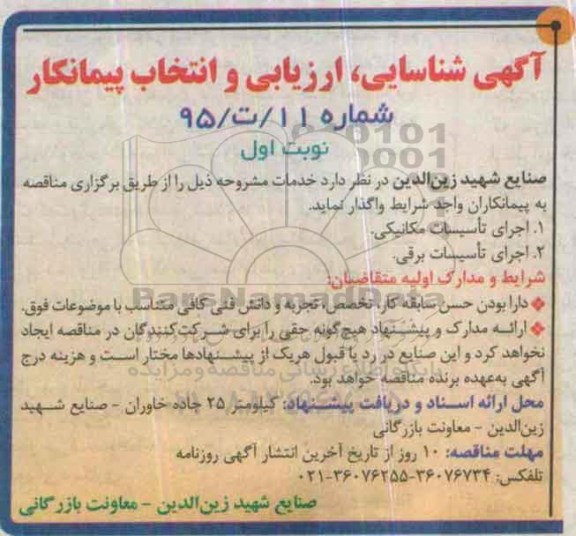 آگهی شناسایی، ارزیابی و انتخاب پیمانکار
شماره ۱۱/ت/۹۵
نوبت اول
صنایع شهید زین‌الدین در نظر دارد خدمات مشروحه ذیل را از طریق برگزاری مناقصه
به پیمانکاران واجد شرایط واگذار نماید.
۱. اجرای تأسیسات مکانیکی.
۲. اجرای تأسیسات برقی.
شرایط و مدارک اولیه متقاضیان:
❖ دارا بودن حسن سابقه کار، تخصص، تجربه و دانش فنی کافی متناسب با موضوعات فوق.
❖ ارائه مدارک و پیشنهاد هیچ‌گونه حقی را برای شرکت‌کنندگان در مناقصه ایجاد
نخواهد کرد و این صنایع در رد یا قبول هریک از پیشنهادها مختار است و هزینه درج
آگهی به‌عهده برنده مناقصه خواهد بود.
محل ارائه اسناد و دریافت پیشنهاد: کیلومتر ۲۵ جاده خاوران - صنایع شهید
زین‌الدین - معاونت بازرگانی
مهلت مناقصه: ۱۰ روز از تاریخ آخرین انتشار آگهی روزنامه
تلفکس: ۳۶۰۷۶۷۳۴-۳۶۰۷۶۲۵۵-۰۲۱
صنایع شهید زین‌الدین - معاونت بازرگانی